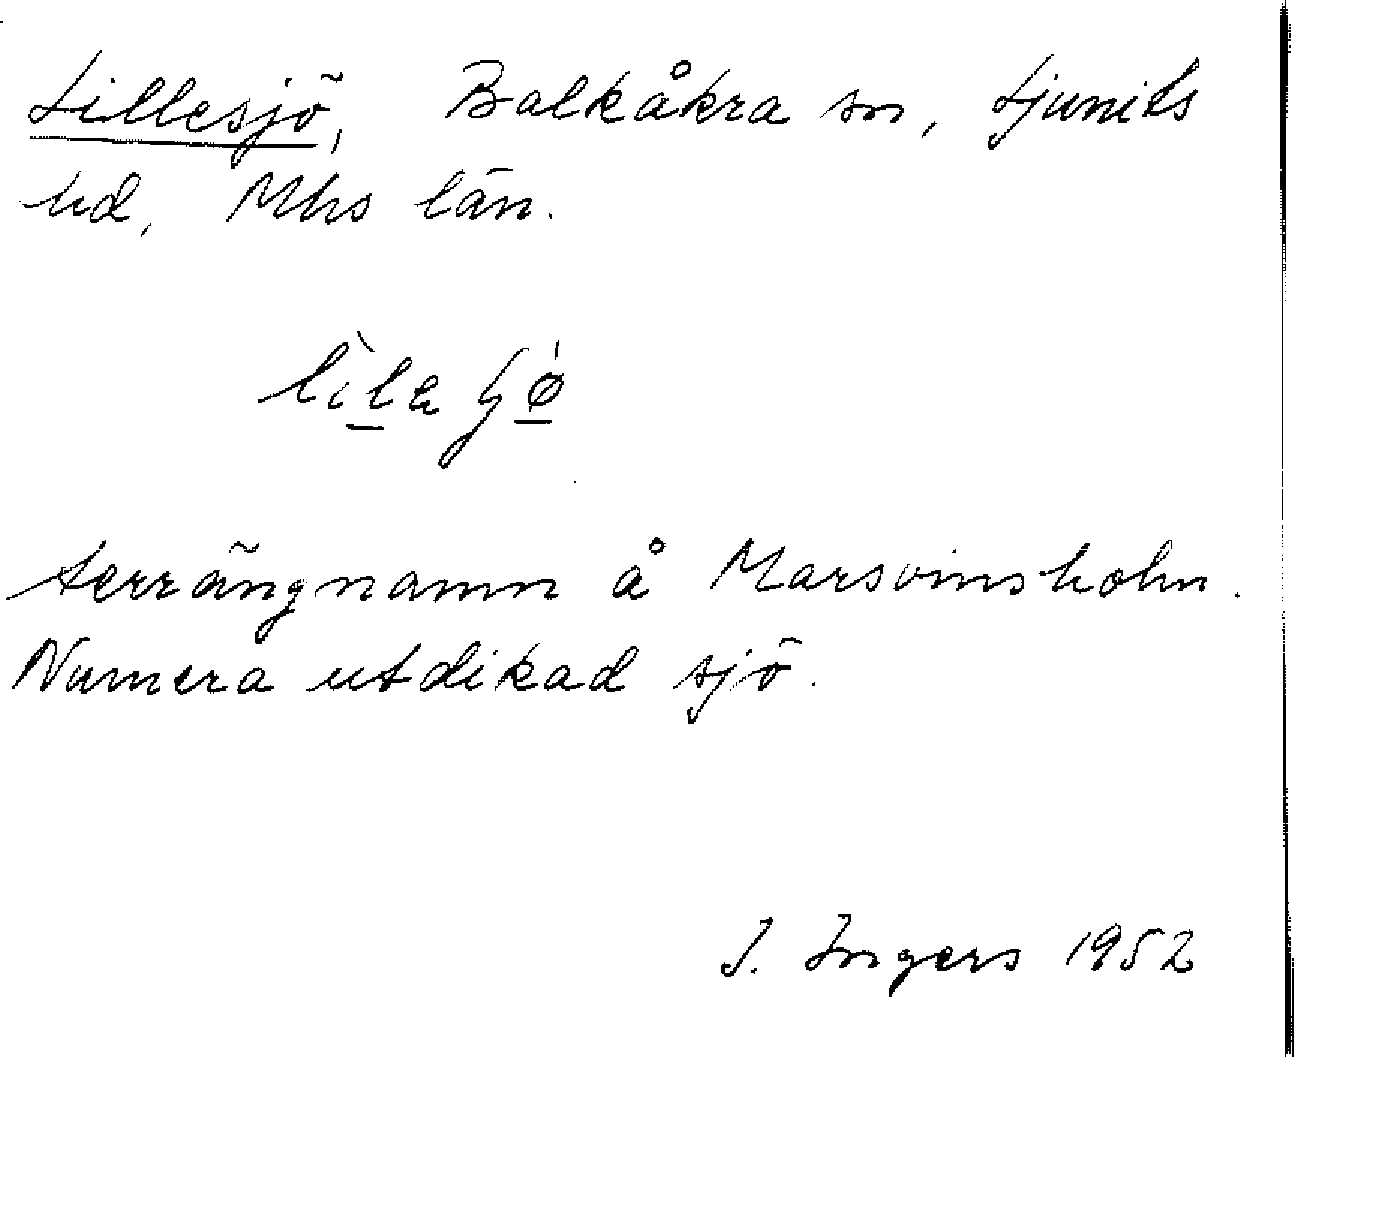 Lillesjö, Balkåkra sn, Ljunits
hd, Mhs län.
terrängnamn å Marsvinsholm.
Numera utdikad sjö.
I. Ingers 1952